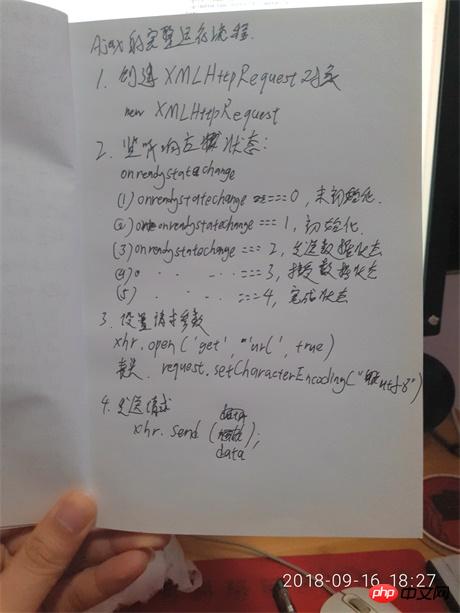 Ajax的完整运行流程.
1. 创建 XMLHttpRequest 对象
new XMLHttpRequest
2. 监听响应状态:
onreadystatechange
(1) onredystatechange === 0, 未初始化.
(2) onredystatechange === 1, 初始化.
(3) onredystatechange === 2, 发送数据状态
(4) · · · === 3, 接受数据状态
(5) · · === 4, 完成状态
3. 设置请求参数
xhr.open('get', 'url', true)
request.setCharacterEncoding("utf-8")
4. 发送请求
xhr.send (
);
data
2018-09-16 18:27
php 中文网